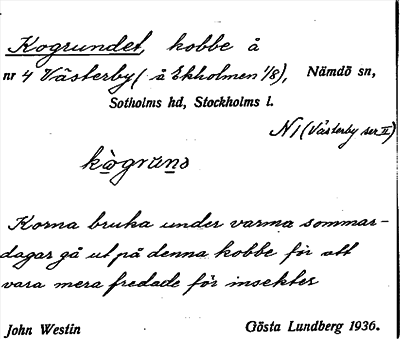 Kogrundet, kobbe å
nr 4 Västerby (å Ekholmen 1/8), Nämdö sn,
Sotholms hd, Stockholms l.
N 1 (Västerby ser II)
kògrūnd
Korna bruka under varma sommar-
dagar gå ut på denna kobbe för att
vara mera fredade för insekter
John Westin Gösta Lundberg 1936.